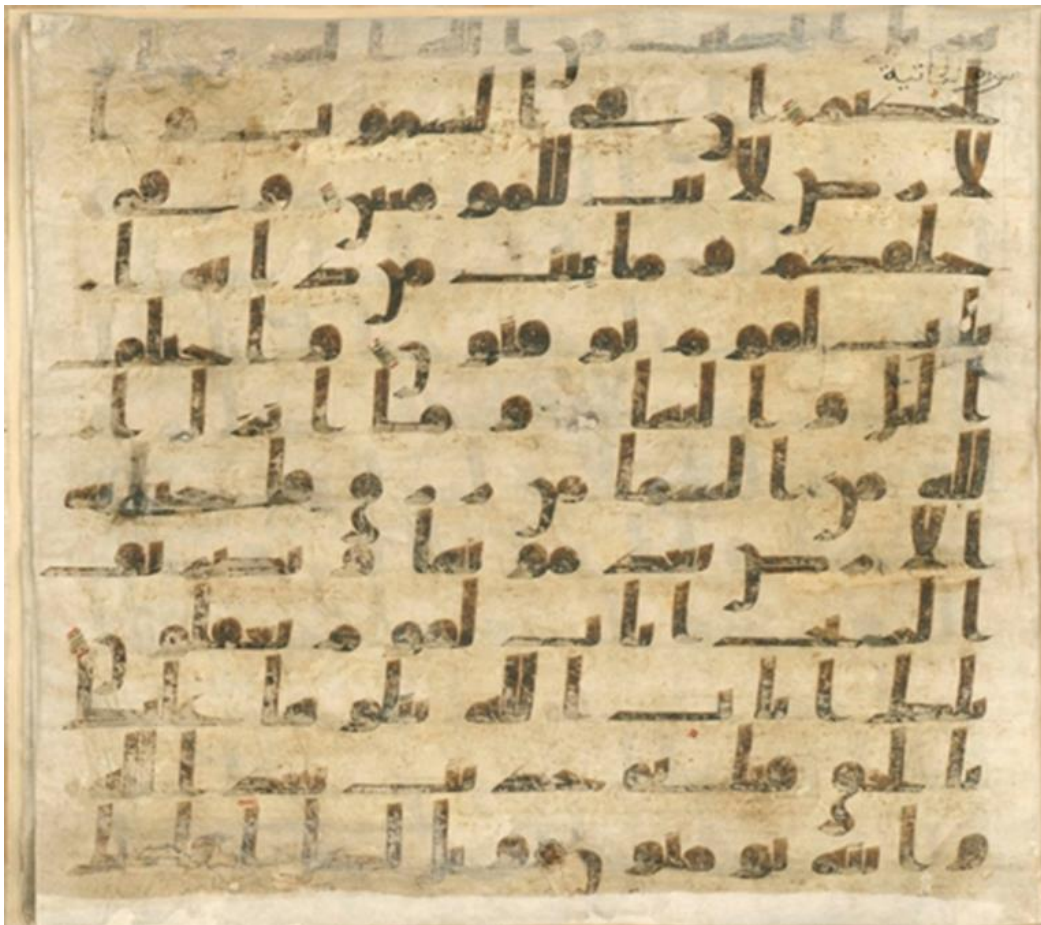 سورة الجاثية
لحكيم ان في السموت و ا
لارض لايت للمومنين و في
خلقكم و ما يبث من دابة ا
يت لقوم يوقنون و اختلف
اليل و النهار و ما انزل ا
لله من السما من رزق فاحيا به
الارض بعد موتها و تصريف
الريح ايت لقوم يعقلون
تلك ايت الله نتلوها عليك
بالحق فباي حديث بعد الله
و ايته يومنون ويل لكل